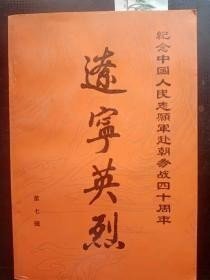 紀念中國人民志願軍赴朝參战四十周年
遼寧英烈
第七辑